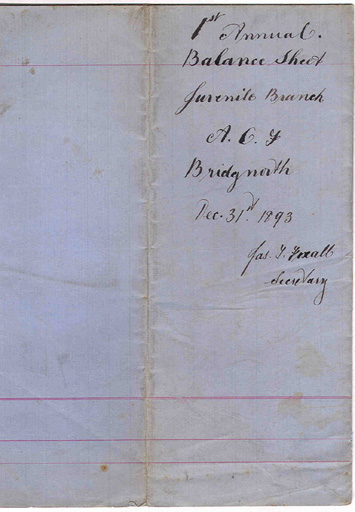 1st Annual.
Balance Sheet
Juvenile Branch
A. O. F
Bridgnorth
Dec. 31st. 1893
Jas. T. Foxall
Secretary